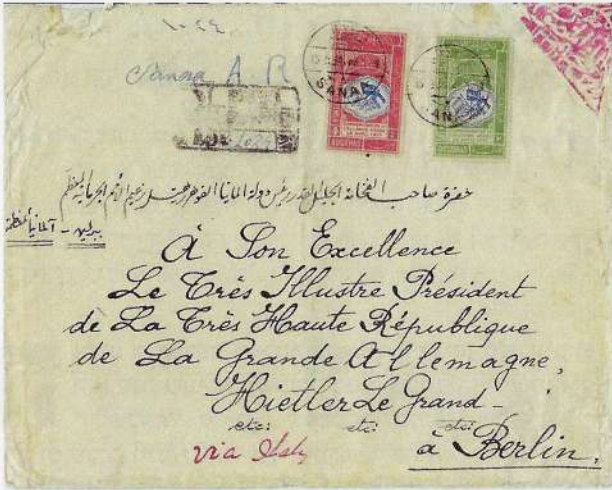 ١٠٢٤
Sanaa A. R
SANAA
SANAA
1024
حضرة صاحب الفخامة الجليل القدر رئيس دولة المانيا الفوهرر هتلر زعيم الأمم الجرمانية المعظم
ببرلين - آلمانيا العظمى
À Son Excellence
Le Très Illustre Président
de La Très Haute République
de La Grande Allemagne,
Hietler Le Grand -
etc: etc: etc:
via Italy
à Berlin.